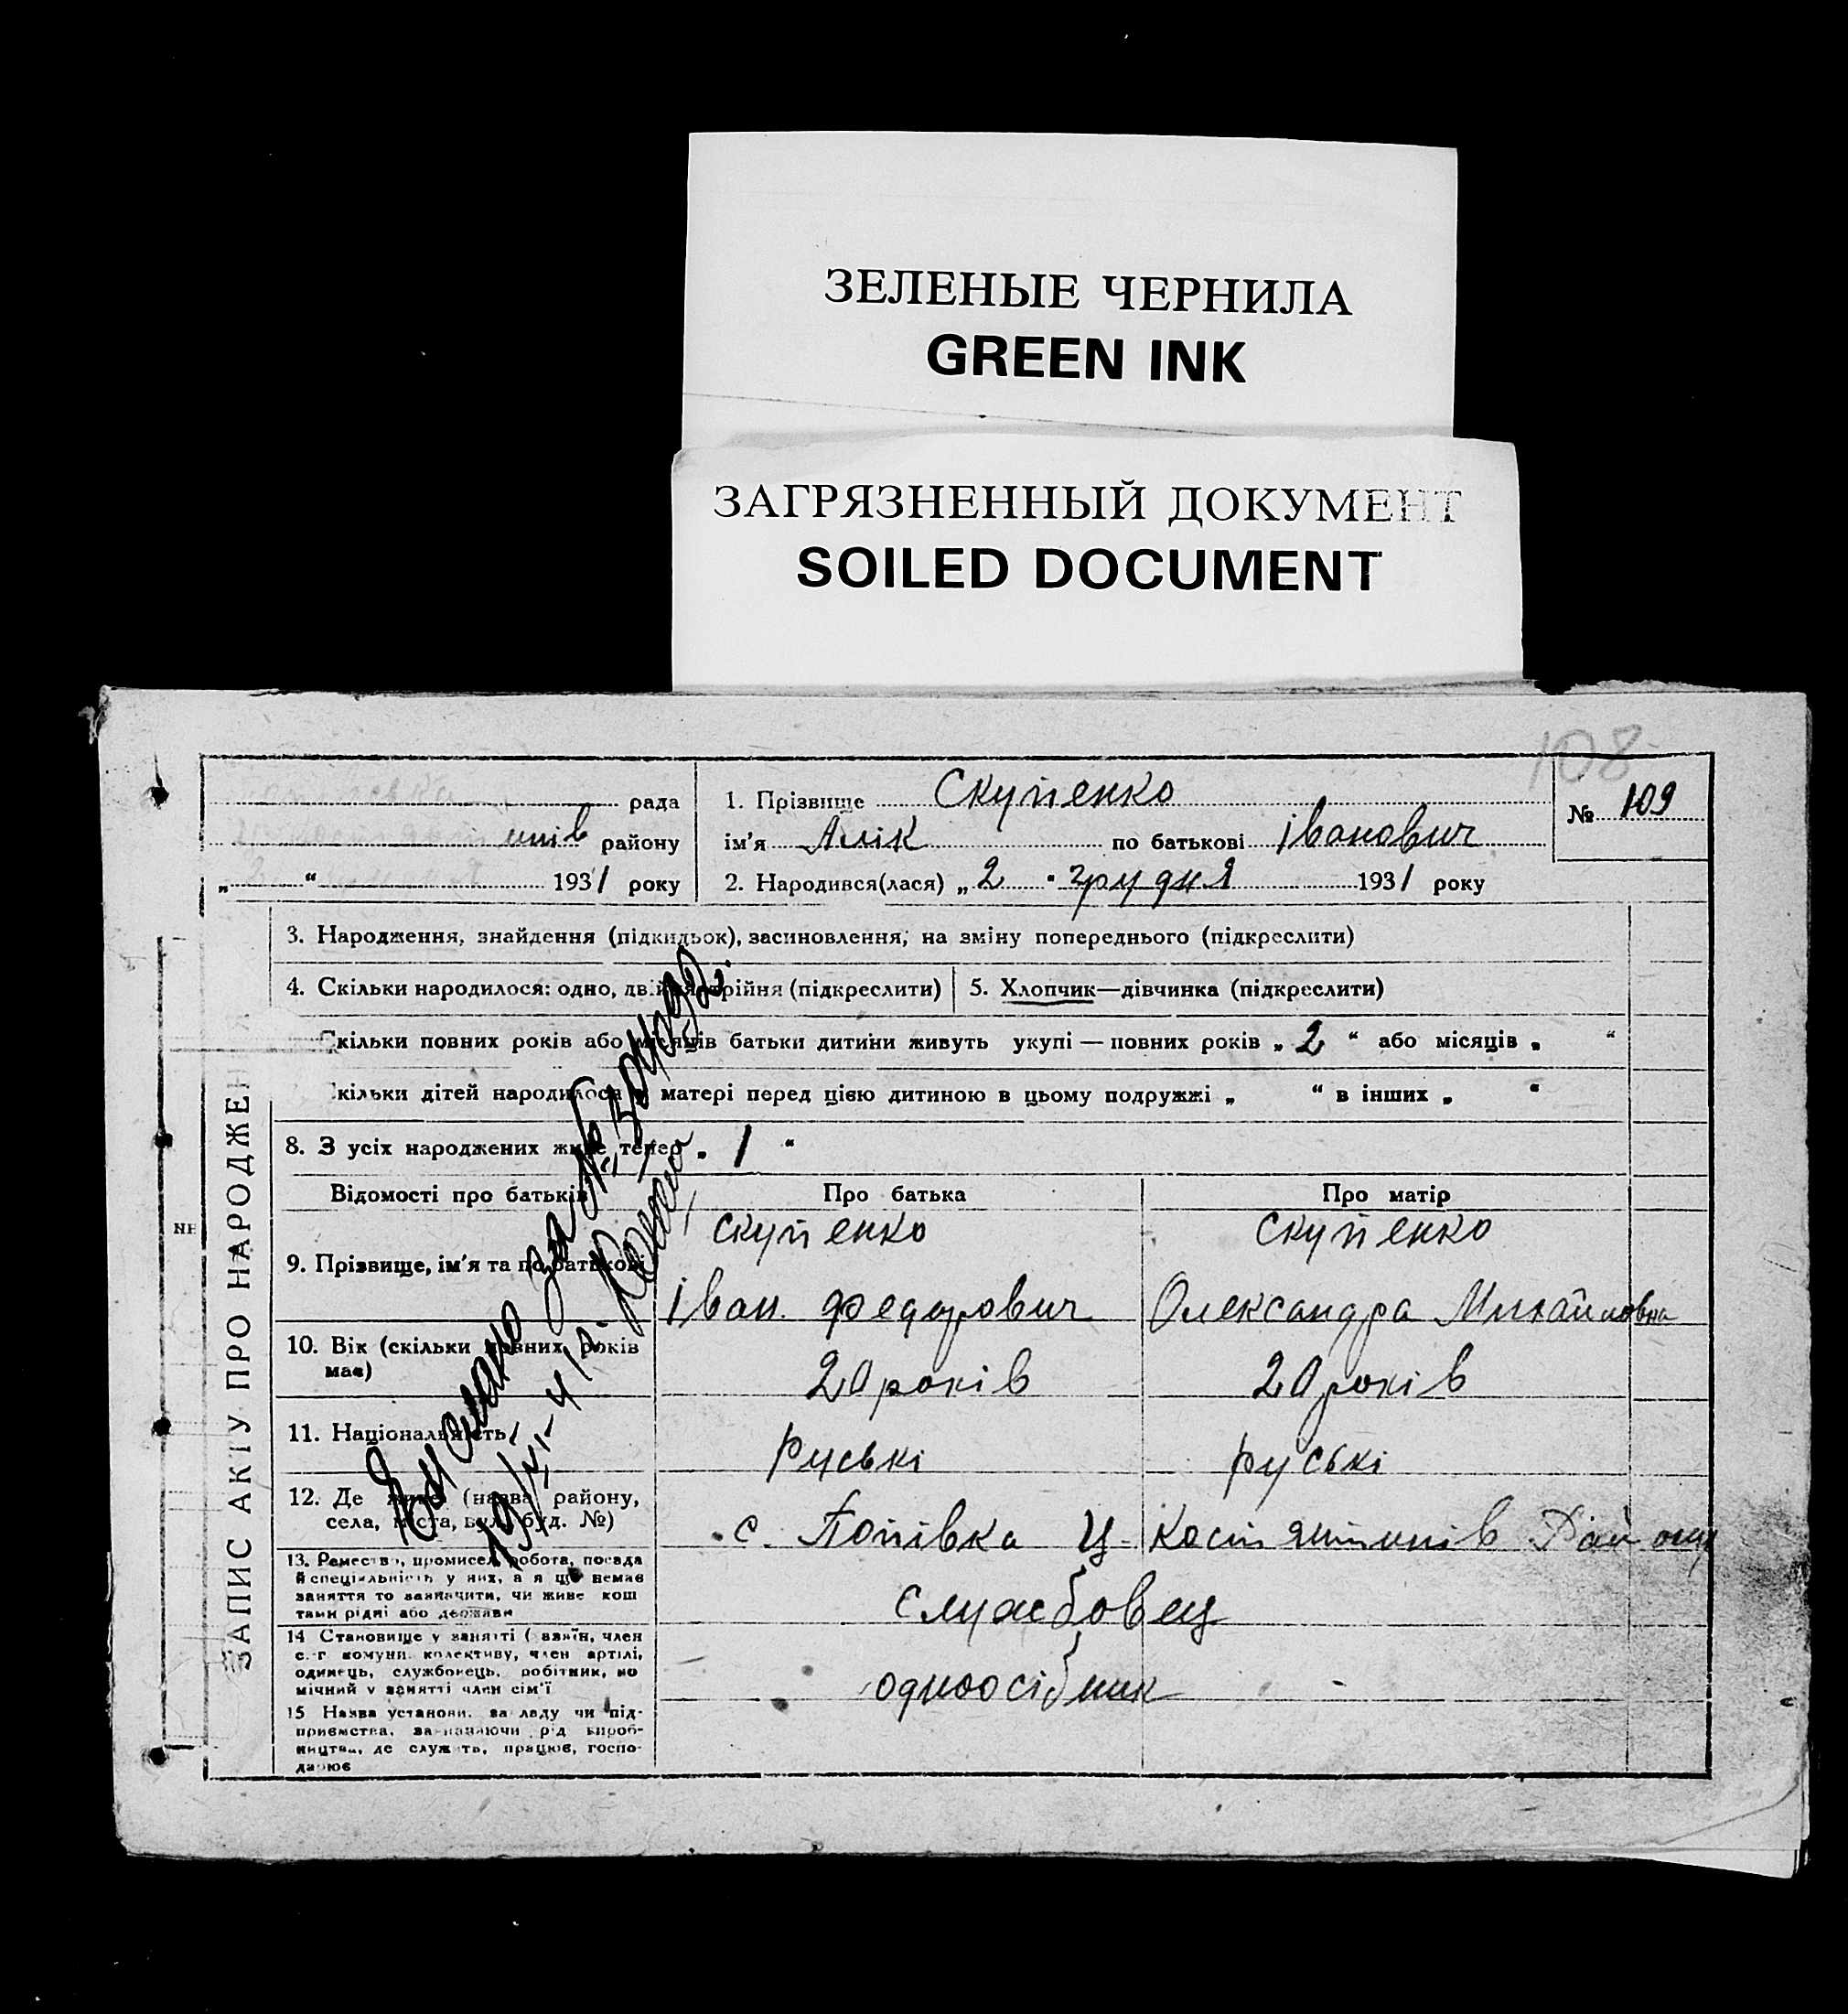 ЗЕЛЕНЫЕ ЧЕРНИЛА
GREEN INK
ЗАГРЯЗНЕННЫЙ ДОКУМЕНТ
SOILED DOCUMENT
108
рада
районy
„ “ 1931 року
1. Прізвище Скупенко
ім'я Алік по батькові Іванович
2. Народився(лася) „2 " грудня 1931 року
№ 109
3. Народження, знайдення (підкидьок), засиновлення, на зміну попереднього (підкреслити)
4. Скільки народилося: одно, двійня, трійня (підкреслити)
5. Хлопчик—дівчинка (підкреслити)
Скільки повних років або місяців батьки дитини живуть укупі — повних років „ 2 “ або місяців „ “
кільки дітей народилося у матері перед цією дитиною в цьому подружжі „ “ в інших „ “
8. З усіх народжених живе тепер „ 1 “
Відомості про батьків
Про батька
Про матір
9. Прізвище, ім'я та по батькові
Скупенко
Іван Федорович
Скупенко
Олександра Михайловна
10. Вік (скільки повних років
має)
20 років
20 років
11. Національність
руські
руські
12. Де живе (назва району,
села, міста, вул. буд. №)
с. Попівка
13. Ремество, промисел, робота, посада
й спеціяльність у них, а якщо немає
заняття то зазначити, чи живе кош
тами рідні або держави
службовец
14 Становище у занятті (хазяїн, член
с.-г комуни, колективу, член артілі,
одинець, службовець, робітник, по
мічний у занятті член сім'ї
одноосібник
15 Назва установи, закладу чи під-
приємства, зазначаючи рід вироб-
ництва, де служить, працює, госпо-
дарює
ЗАПИС АКТУ ПРО НАРОДЖЕН